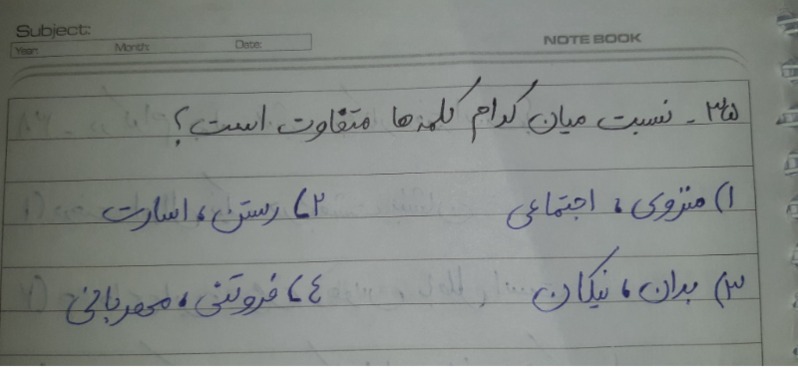 Subject:
Year: Month: Date:
NOTE BOOK
۳۵ - نسبت میان کدام کلمه ها متفاوت است؟
۱) منزوی ، اجتماعی ۲) رستن ، اسارت
۳) بدان ، نیکان ٤) فروتنی ، مهربانی